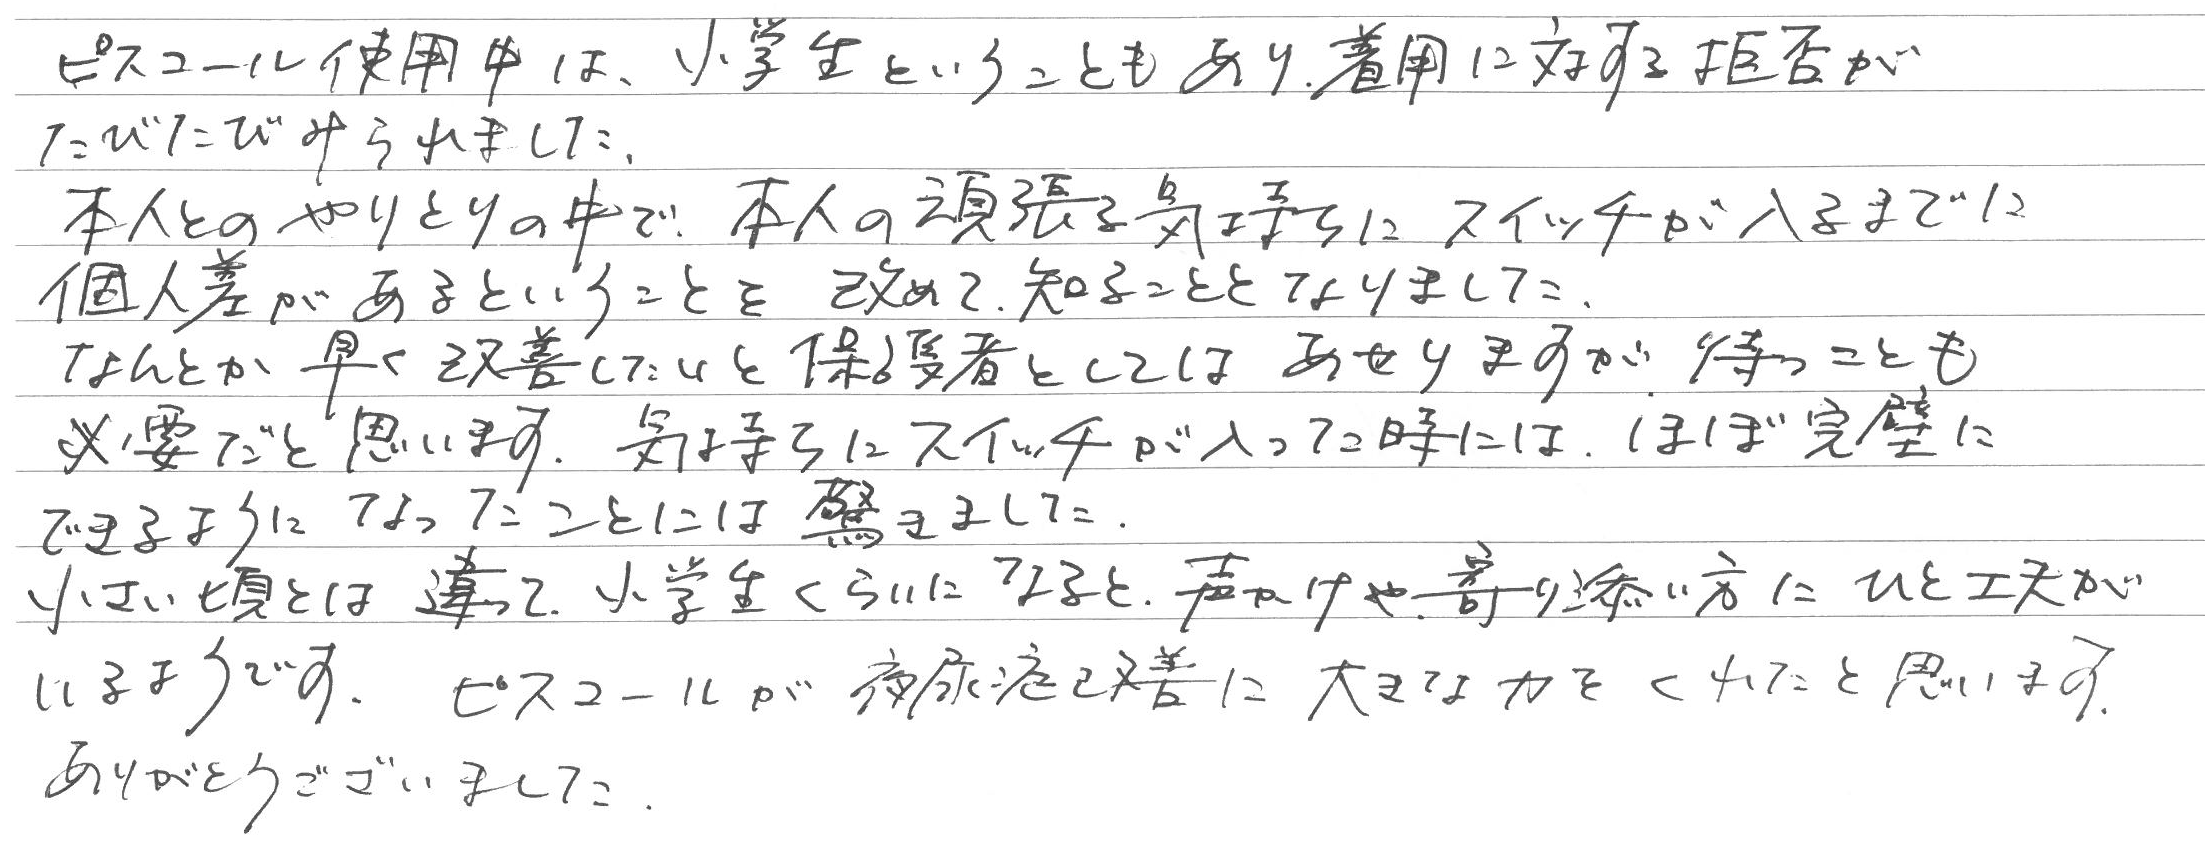 ピスコール使用中は、小学生ということもあり、着用に対する拒否が
たびたびみられました。
本人とのやりとりの中で、本人の頑張る気持ちにスイッチが入るまでに
個人差があるということを改めて、知ることとなりました。
なんとか早く改善したいと保護者としてはあせりますが、待つことも
必要だと思います。気持ちにスイッチが入った時には、ほぼ完璧に
できるようになったことには驚きました。
小さい頃とは違って、小学生くらいになると、声かけや、寄り添い方にひと工夫が
いるようです。ピスコールが夜尿症改善に大きな力をくれたと思います。
ありがとうございました。